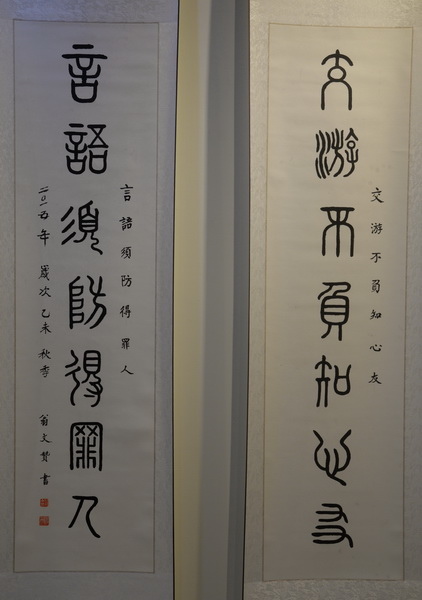 交游不負知心友
交游不負知心友
言語須防得罪人
言語須防得罪人
二〇一五年 歲次乙未 秋季 翁文贊書